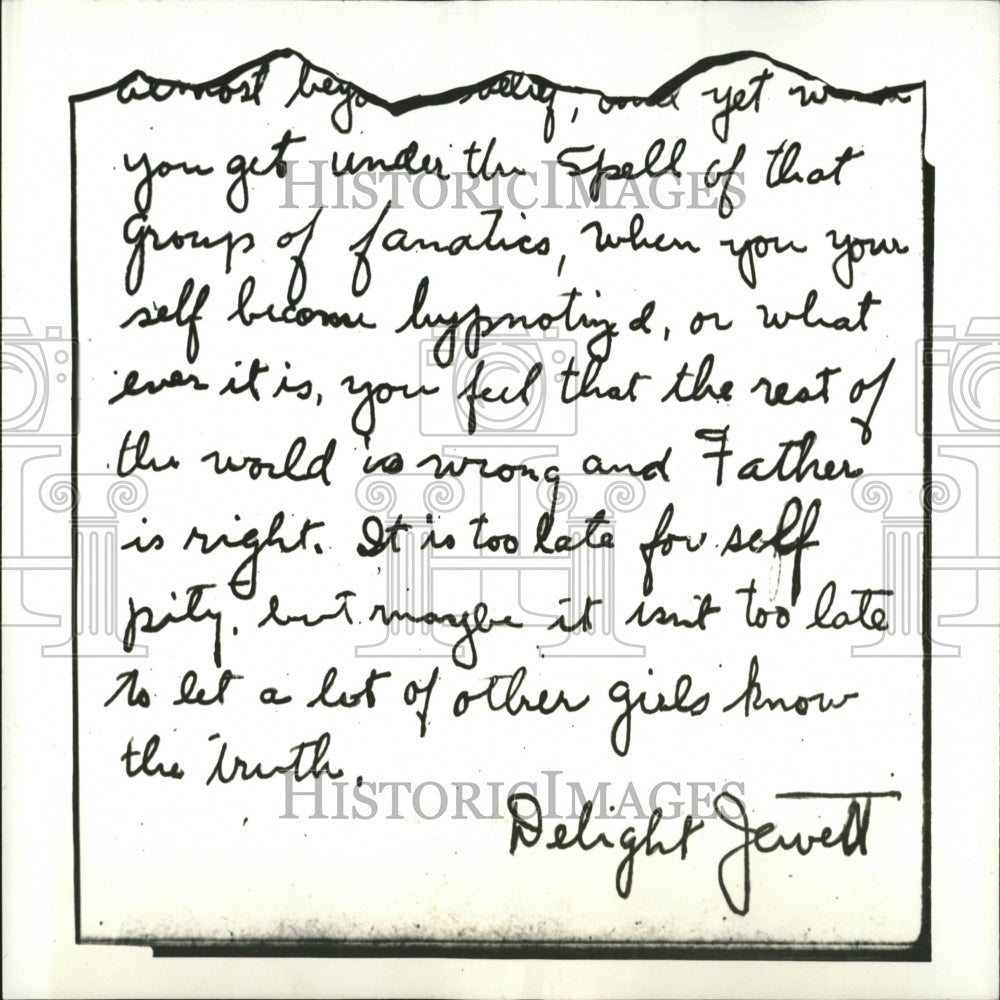 almost beyond belief, and yet when
you get under the spell of that
group of fanatics, when you your
self become hypnotized, or what
ever it is, you feel that the rest of
the world is wrong and Father
is right. It is too late for self
pity, but maybe it isn't too late
to let a lot of other girls know
the truth.
Delight Jewett
HISTORICIMAGES
HISTORICIMAGES